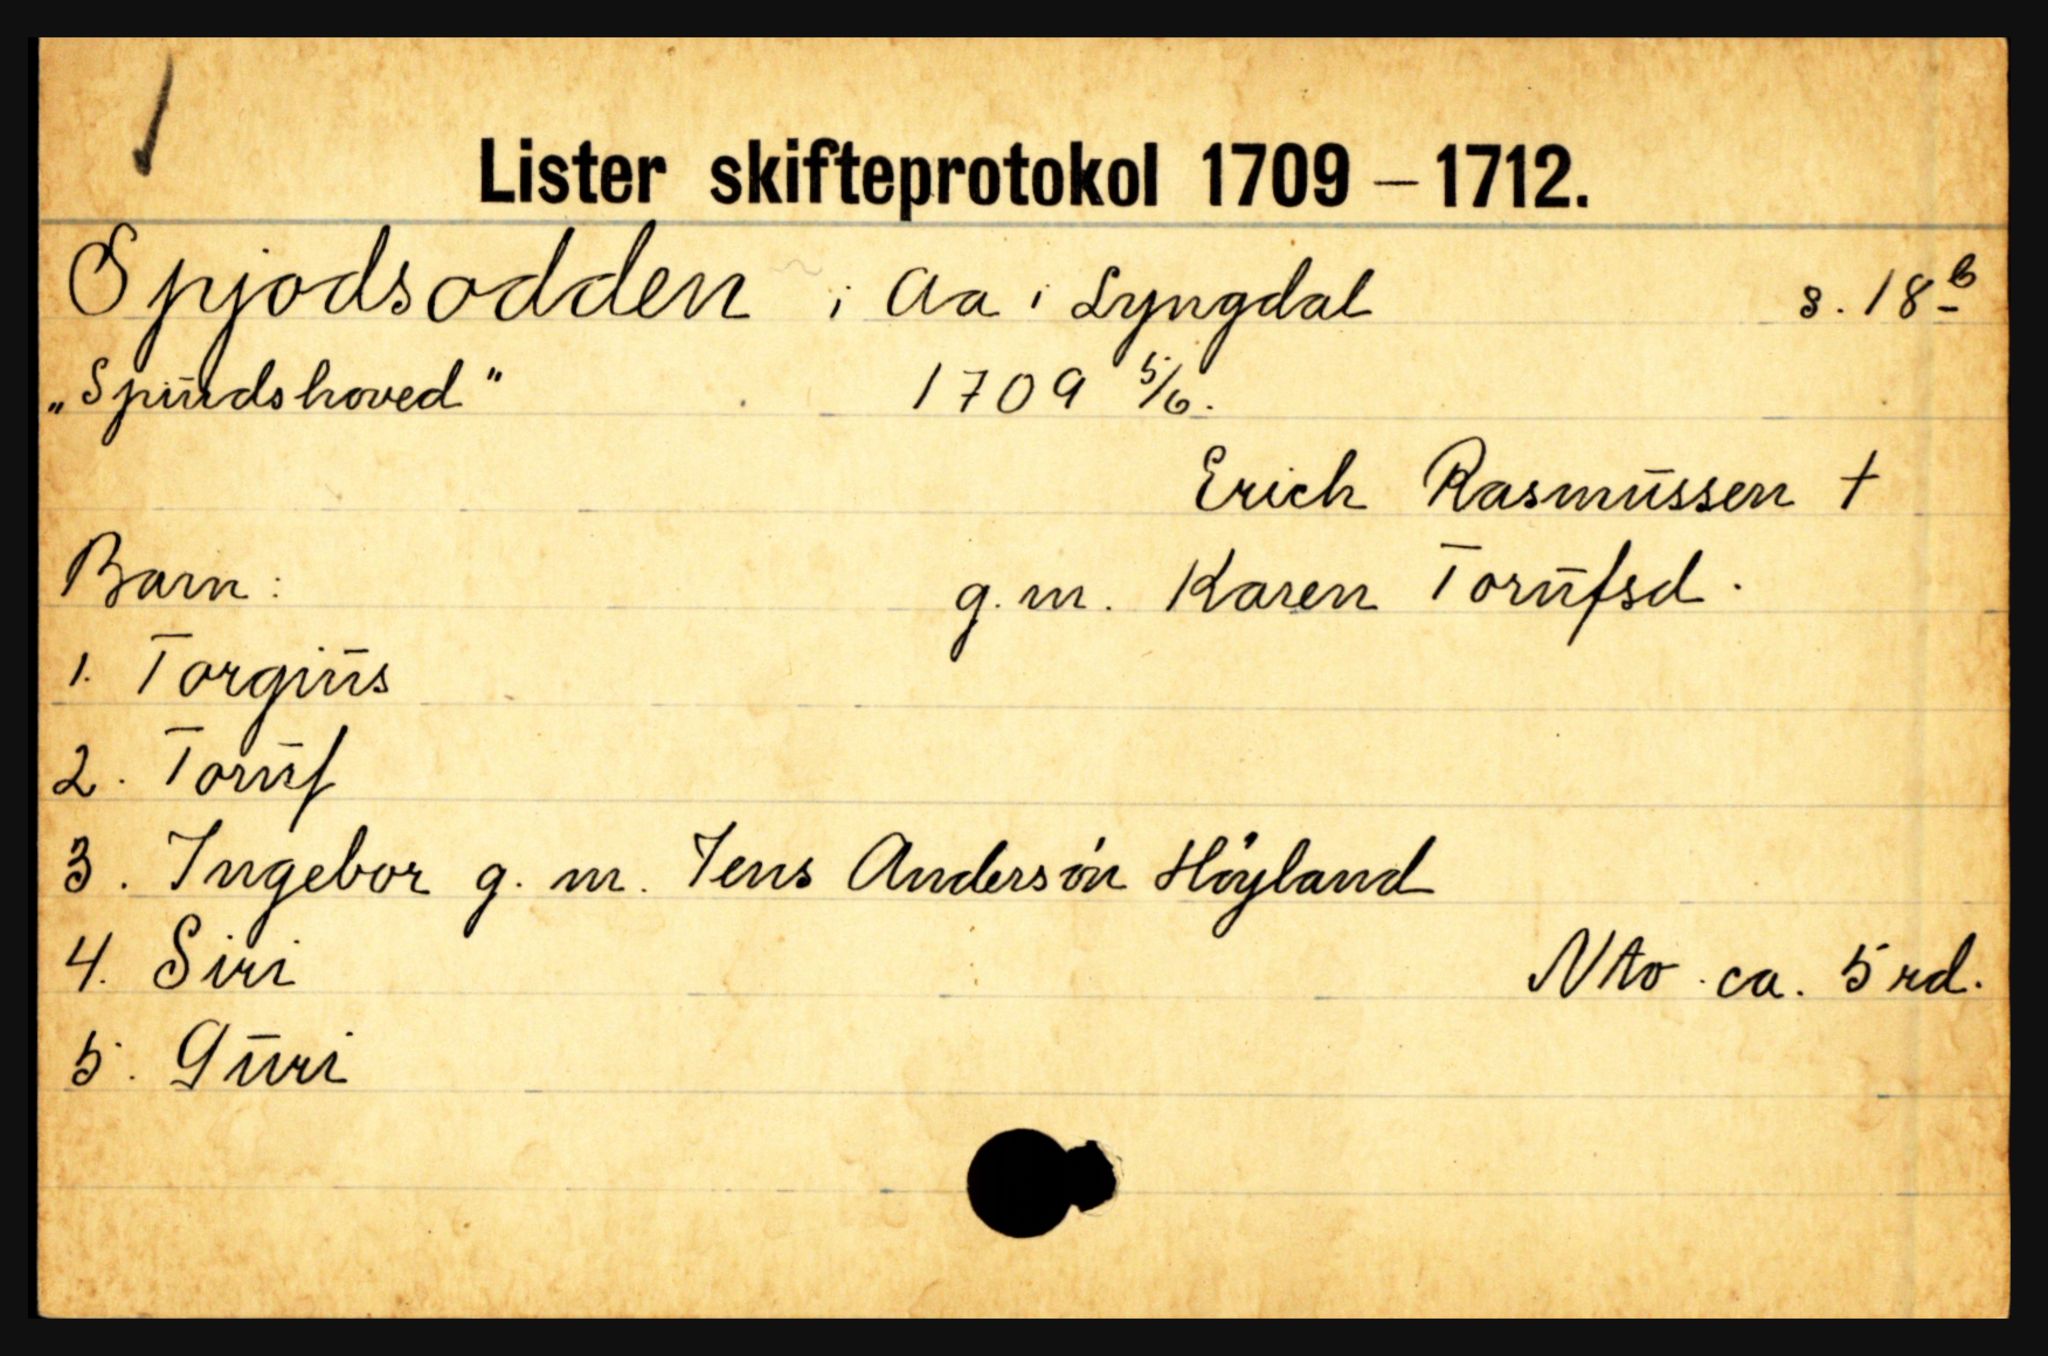 Lister skifteprotokol 1709 – 1712.
Spjodsodden i Aa i Lyngdal s. 18b
„Spiudshoved" 1709 5/6.
Erich Rasmussen †
Barn: g. m. Karen Torufsd.
1. Torgius
2. Toruf
3. Ingebor g. m. Jens Andersøn Höyland
4. Siri Nto. ca. 5 rd.
5. Guri